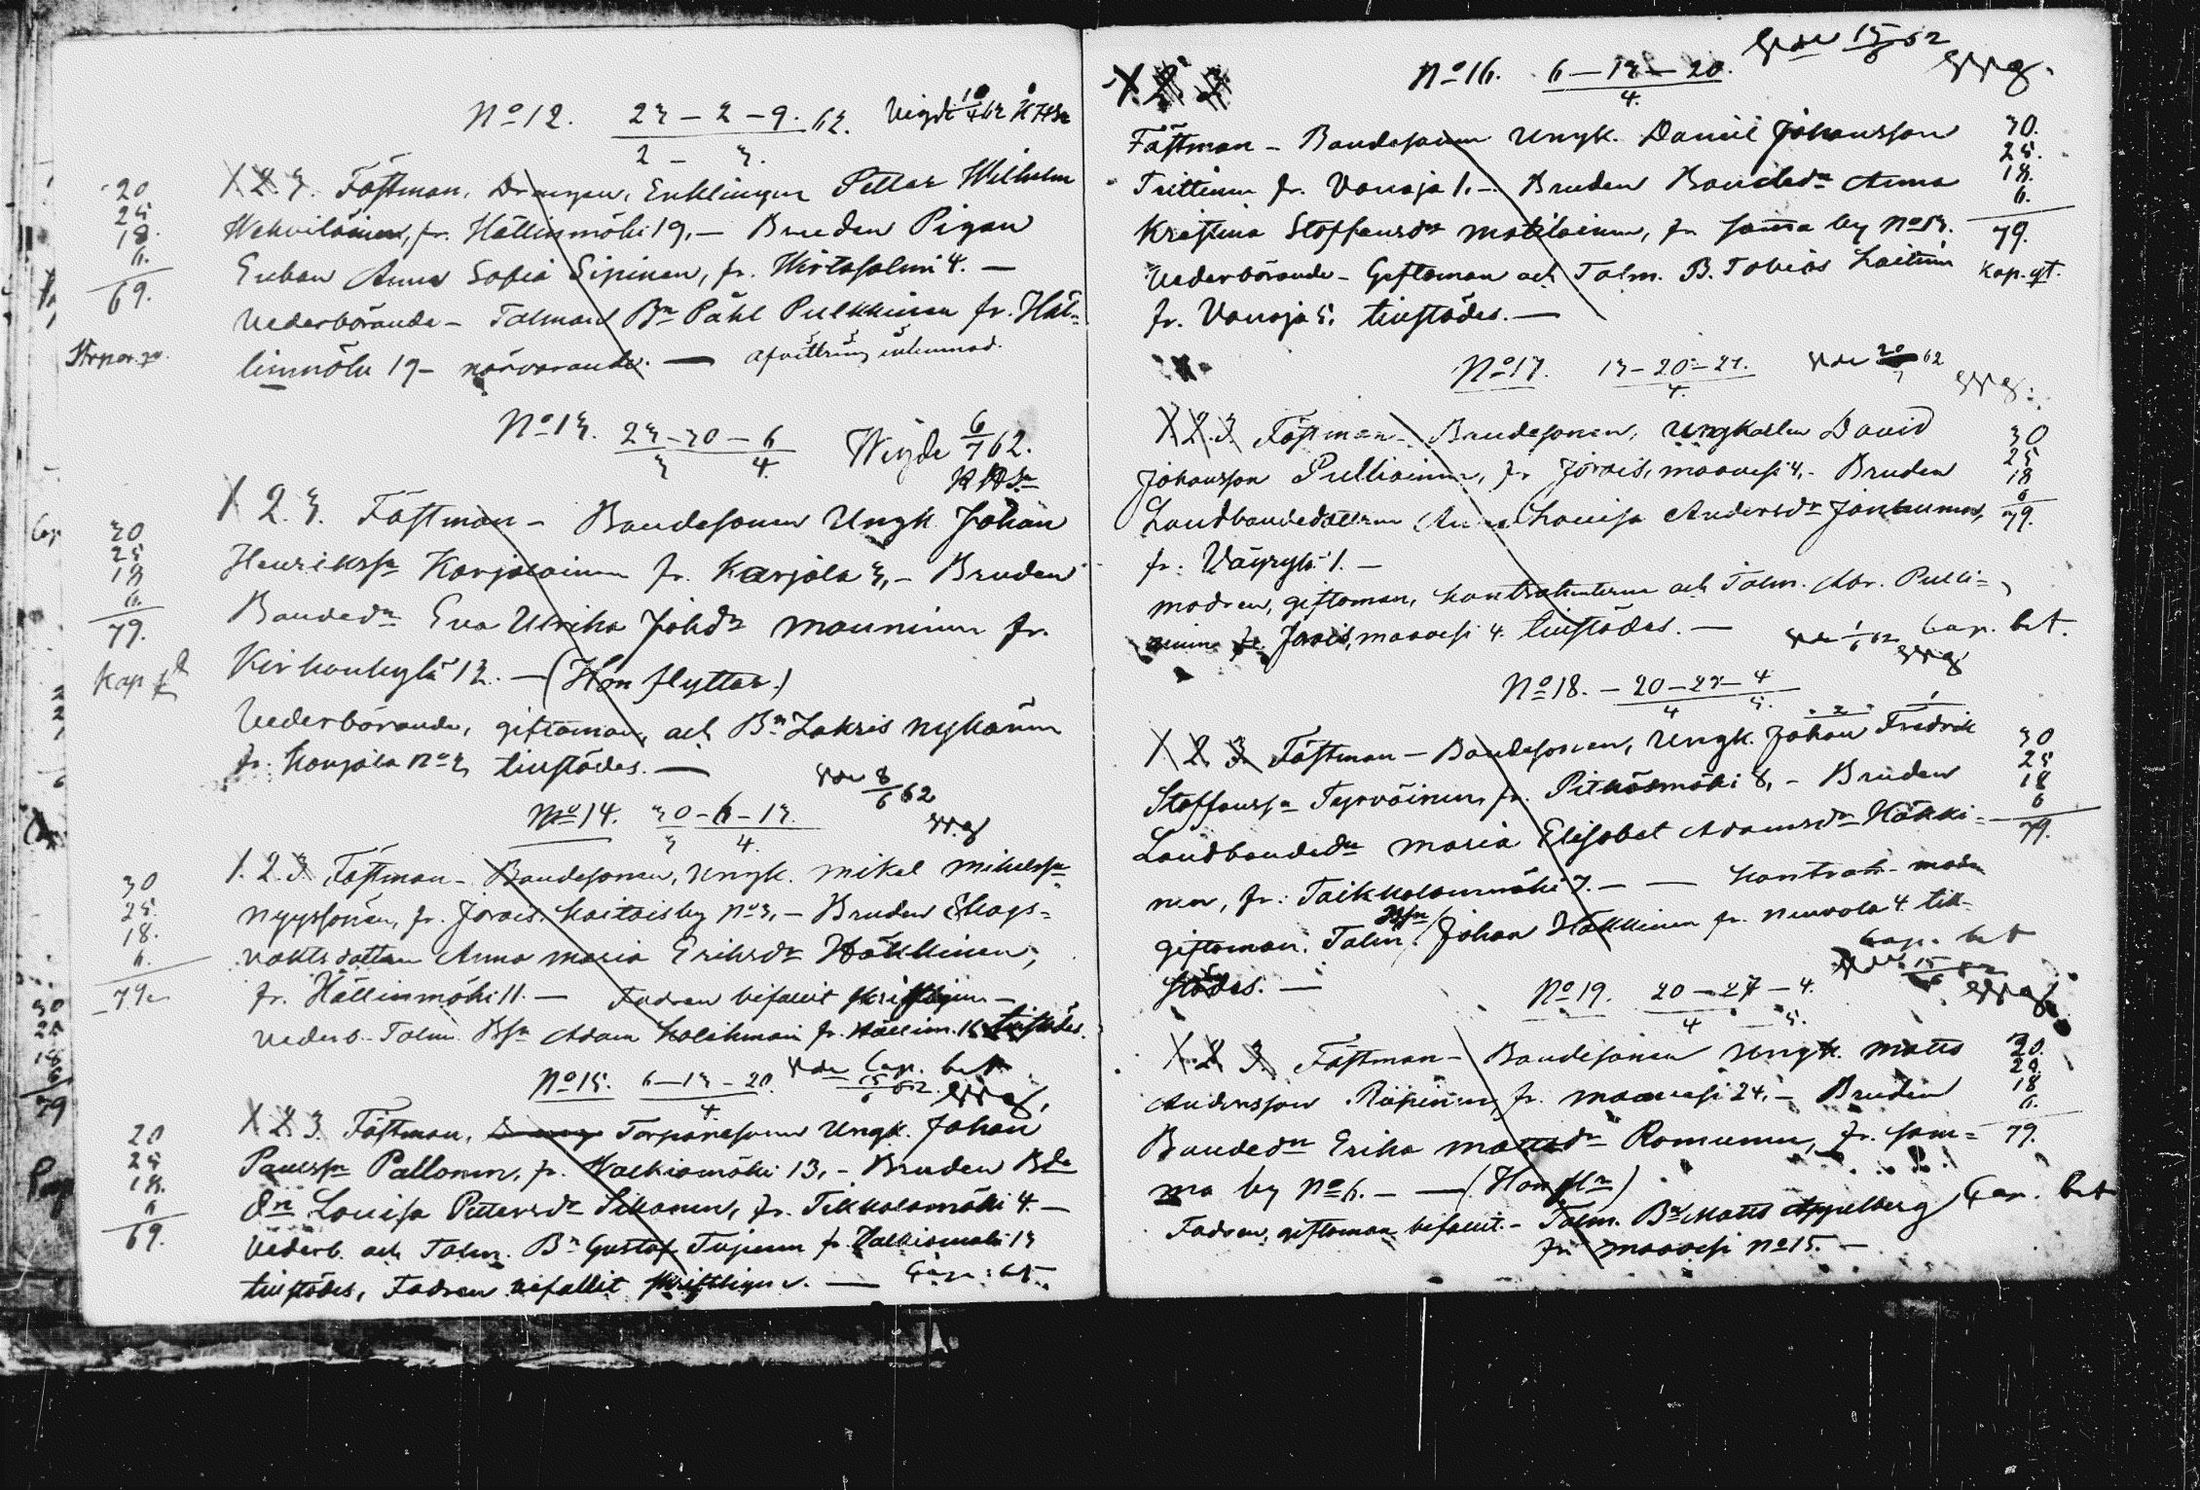 No 12. 23 – 2 – 9. 62. Vigde 10/4 62
2 – 3.
1 2 3. Fästman, Drängen, Enklingen Petter Wilhelm
Wehviläinen, fr. Hällinmäki 19, – Bruden Pigan
Enkan Anna Sofia Sipinen, fr. Wirtasalmi 4. –
Vederbörande – Talman Bn Påhl Pulkkinen fr. Häl=
linmäki 19 – närvarande. – afvittring inlemnad.
20
25
18.
6.
69.
No 13. 23 – 30 – 6 Wigde 6/7 62.
3 4
1 2. 3. Fästman – Bondesonen Ungk. Johan
Henrikssn Karjalainen fr. Karjala 3, – Bruden
Bondedn Eva Ulrika Johdr Manninen fr.
Kirkonkylä 12. – (Hon flyttar.)
Vederbörande, giftoman, och Bn Zakris Nykänen
fr. Karjala No 3 tillstädes. –
30
25
18
6.
79.
No 14. 30 – 6 – 13. 8/6 62
3 4.
1. 2. 3. Fästman – Bondesonen, Ungk. Mikel Mikelssn
Nyyssönen, fr. Jorois Kaitaisby No 3, – Bruden Skogs=
vaktsdottren Anna Maria Eriksdr Häkkinen,
fr. Hällinmäki 11. – Fadren bifallit skriftligen –
Vederb. Talm. Bsn Adam Kolehmain fr. Hällinm. 16 tillstädes.
30
25.
18.
6.
79
No 15. 6 – 13 – 20. Cap. bet
4.
1 2 3. Fästman, Torparesonen Ungk. Johan
Paulssn Pallonen, fr. Valkiamäki 13, – Bruden Bde
dn Lovisa Pettersdr Sikanen, fr. Tikkalamäki 4. –
Vederb. och Talm. Bn Gustaf Tujunen fr. Valkiamäki 13
tillstädes, Fadren bifallit skriftligen. – Cap. bet.
20
25
18.
6
69.
No 16. 6 – 13 – 20. 15/6 62
4.
Fästman – Bondesonen Ungk. Daniel Johansson
Trittinen fr. Vanaja 1. – Bruden Bondedr Anna
Kristina Staffansdr Matilainen, fr samma by No 13.
Vederbörande – Giftoman och Talm. B. Tobias Laitinen
fr. Vanaja 5. tillstädes. –
30.
25.
18.
6.
79.
Kap. gt.
No 17. 13 – 20 – 27. 62
4.
1. 2. 3. Fästman – Bondesonen, Ungkarlen David
Johansson Pulliainen, fr Jorois, Maavesi 4, – Bruden
Landbondedottren Anna Lovisa Andersdr Jantunen,
fr. Väyrylä 1. –
Modren, giftoman, kontrahenterne och Talm. Abr. Pulli=
ainen fr. Jorois, Maavesi 4. tillstädes. – Cap. bet.
30
25
18
6
79.
No 18. – 20 – 27 – 4
4 5.
1 2 3. Fästman – Bondesonen, Ungk. Johan Fredrik
Staffanssn Tyrväinen, fr. Pitkäsmäki 8, – Bruden
Landbondedn Maria Elisabet Adamsdr Häkki=
nen, fr. Taikkalanmäki 7. – – Kontrah. Mod.
giftoman. Talm. Bsn Johan Häkkinen fr. Neuvola 4 till-
städes. – Cap. bet
30
25
18
6
79.
No 19. 20 – 27 – 4.
4 5.
1. 2 3. Fästman – Bondesonen Ungk. Matts
Andersson Riipinen, fr. Maavesi 24, – Bruden
Bondedn Erika Mattsdr Romunen, fr. sam=
ma by No 6. –
Fadren, giftoman bifallit. – Talm. Bn Matts Appelberg Cap. bet
fr. Maavesi No 15. –
18
6.
79.